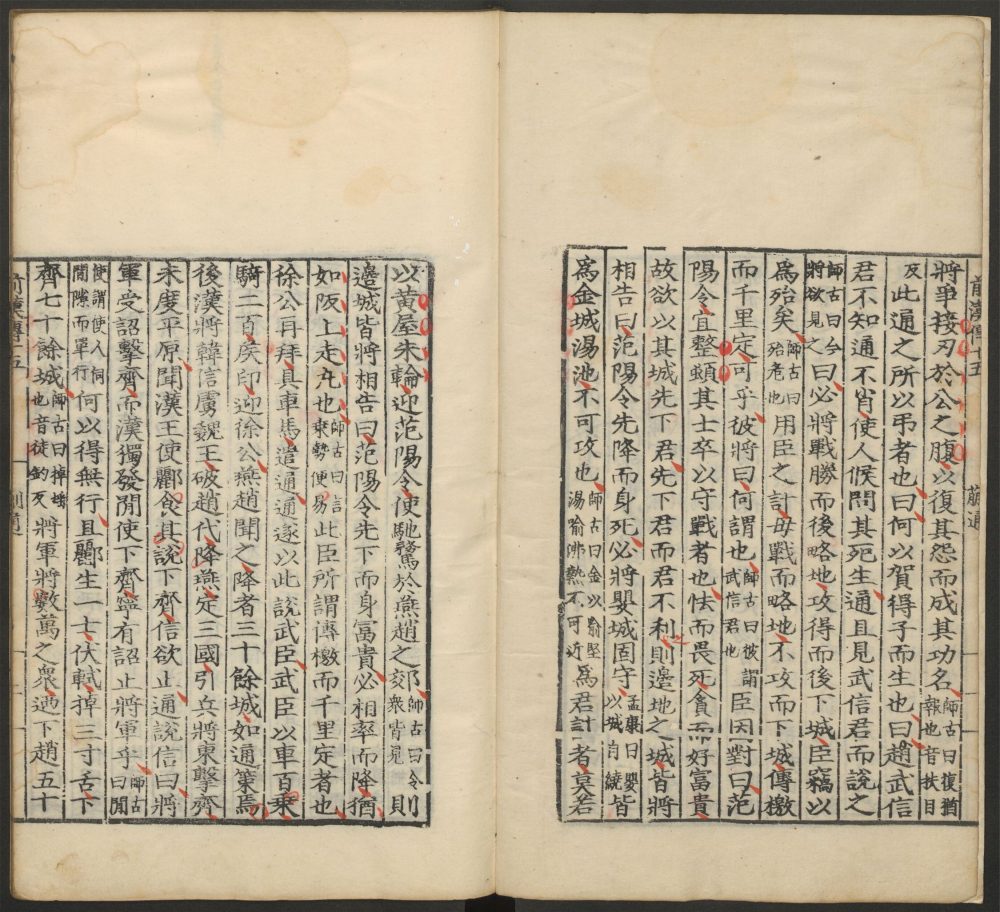 前漢傳十五
蒯通
將爭接刃於公之腹以復其怨而成其功名師古曰復猶報也音扶目
反此通之所以弔者也曰何以賀得子而生也曰趙武信
君不知通不肖使人候問其死生通且見武信君而說之
師古曰今將欲見之曰必將戰勝而後略地攻得而後下城臣竊以
爲殆矣師古曰殆危也用臣之計毋戰而略地不攻而下城傳檄
而千里定可乎彼將曰何謂也師古曰彼謂武信君也臣因對曰范
陽令宜整頓其士卒以守戰者也怯而畏死貪而好富貴
故欲以其城先下君先下君而君不利則邊地之城皆將
相告曰范陽令先降而身死必將嬰城固守孟康曰嬰以城自繞皆
爲金城湯池不可攻也師古曰金以喻堅湯喻沸熱不可近爲君計者莫若
以黃屋朱輪迎范陽令使馳騖於燕趙之郊師古曰令衆皆見則
邊城皆將相告曰范陽令先下而身富貴必相率而降猶
如阪上走丸也師古曰言乘勢便易此臣所謂傳檄而千里定者也
徐公再拜具車馬遣通通遂以此說武臣武臣以車百乘
騎二百矦印迎徐公燕趙聞之降者三十餘城如通策焉
後漢將韓信虜魏王破趙代降燕定三國引兵將東擊齊
未度平原聞漢王使酈食其說下齊信欲止通說信曰將
軍受詔擊齊而漢獨發閒使下齊寧有詔止將軍乎師古曰閒
使謂使人伺閒隙而單行何以得無行且酈生一士伏軾掉三寸舌下
齊七十餘城師古曰掉搖也音徒釣反將軍將數萬之衆迺下趙五十
前漢傳十五
蒯通